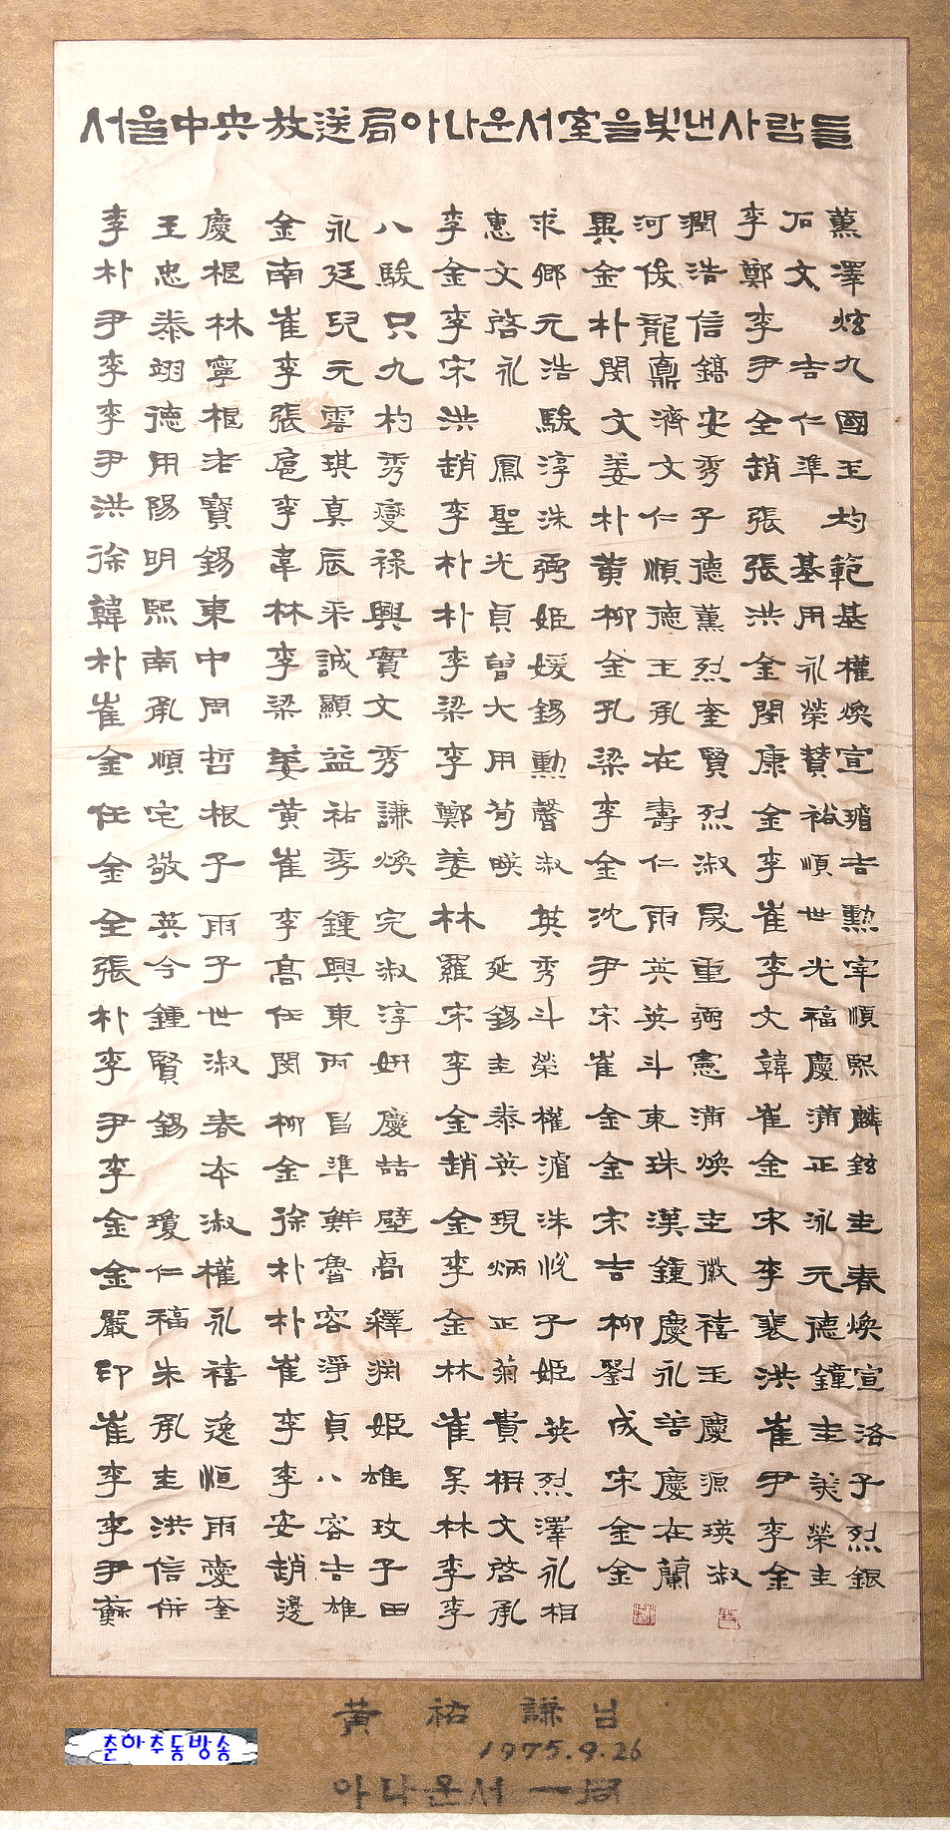 서울中央放送局아나운서室을빛낸사람들
李王慶 金永八 李惠求 異河潤 李石薰
朴忠根 南廷駿 金文卿 金俊浩 鄭文澤
尹泰林 崔兒只 李啓元 朴龍信 李 炫
李翊寧 李元九 宋礼浩 閔鼎鎬 尹吉九
李德根 張雲杓 洪 駿 文濟安 全仁國
尹用老 扈琪秀 趙鳳淳 姜文秀 趙準玉
洪陽寶 李真燮 李聖洙 朴仁子 張 均
徐明錫 韋辰祿 朴光弼 黄順德 張基範
韓熙東 林采興 朴貞姬 柳德薰 洪用基
朴南中 李誠實 李曾媛 金王烈 金永權
崔承周 梁顯文 梁大錫 孔承奎 閔榮煥
金順哲 姜益秀 李用勳 梁在賢 康賛宣
任宅根 黄祐謙 鄭荀馨 李壽烈 金裕瑠
金敬子 崔季煥 姜暎淑 金仁淑 李順吉
全英雨 李鐘完 林 英 沈雨晟 崔世勳
張今子 高興淑 羅延秀 尹英重 李光宰
朴鍾世 任東淳 宋錫斗 宋英弼 文福順
李賢淑 閔丙姸 李圭榮 崔斗憲 韓慶熙
尹錫春 柳昌慶 金泰權 金東浦 崔滿麟
李 本 金準喆 趙英濱 金珠煥 金正鉉
金瓊淑 徐鮮壁 金現洙 宋漢圭 宋泳圭
金仁權 朴魯卨 李炳悅 吉鍾徽 李元春
嚴福永 朴容釋 金正子 柳慶禧 裵德煥
印朱禧 崔淨淵 林菊姬 劉永玉 洪鐘宣
崔承逸 李貞姬 崔貴英 成善慶 崔圭洛
李圭恒 李八雄 吴枏烈 宋慶源 尹美子
李洪雨 安容玟 林文澤 金在瑛 李榮烈
尹信愛 趙吉子 李啓礼 金蘭淑 金圭銀
蘇併奎 邊雄田 李承相
黄祐謙님
1975.9.26
아나운서 一同
춘하추동방송